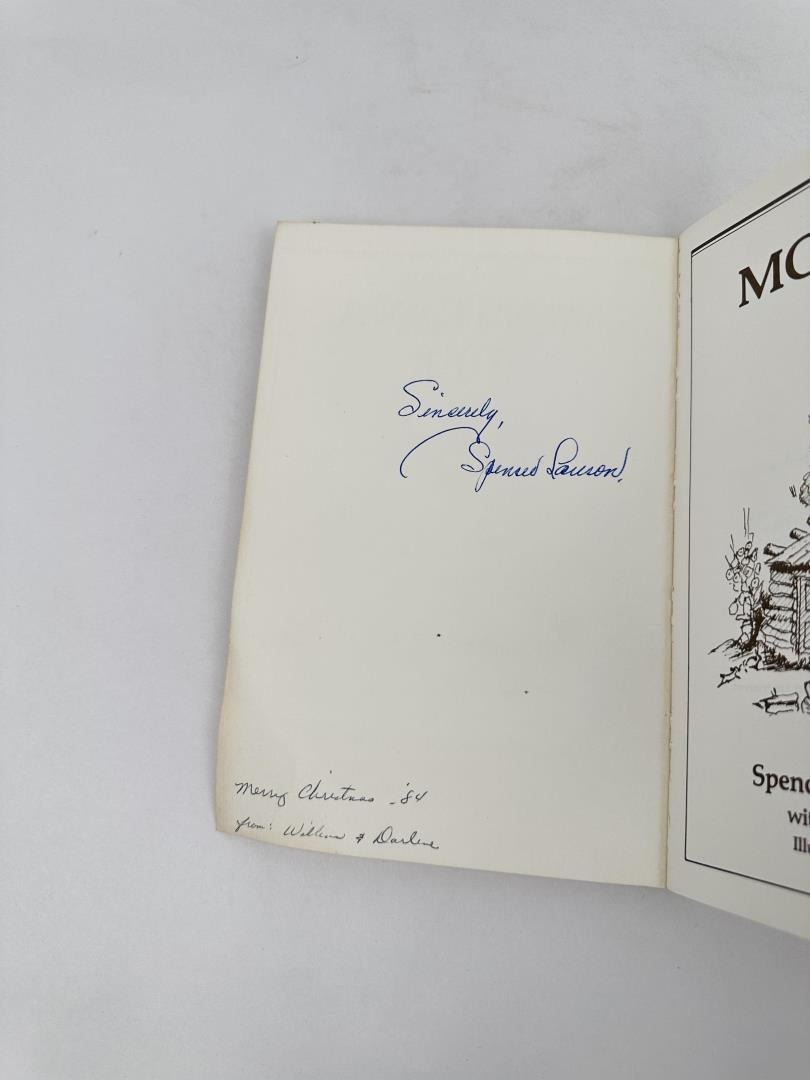 Sincerely,
Spencer Lawson.
Merry Christmas - '84
from: William & Darlene
MO
Spenc
wit
Illu